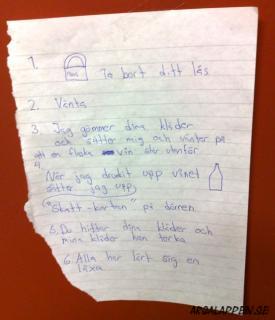 1. Ta bort ditt lås
2. Vänta
3. Jag gömmer dina kläder
och sätter mig och väntar på
att en flaska vin står utanför.
4.
När jag druckit upp vinet
sätter jag upp
"Skatt-kartan" på dörren.
5. Du hittar dina kläder och
mina kläder han torka
6. Alla har lärt sig en
läxa
ARGALAPPEN.SE